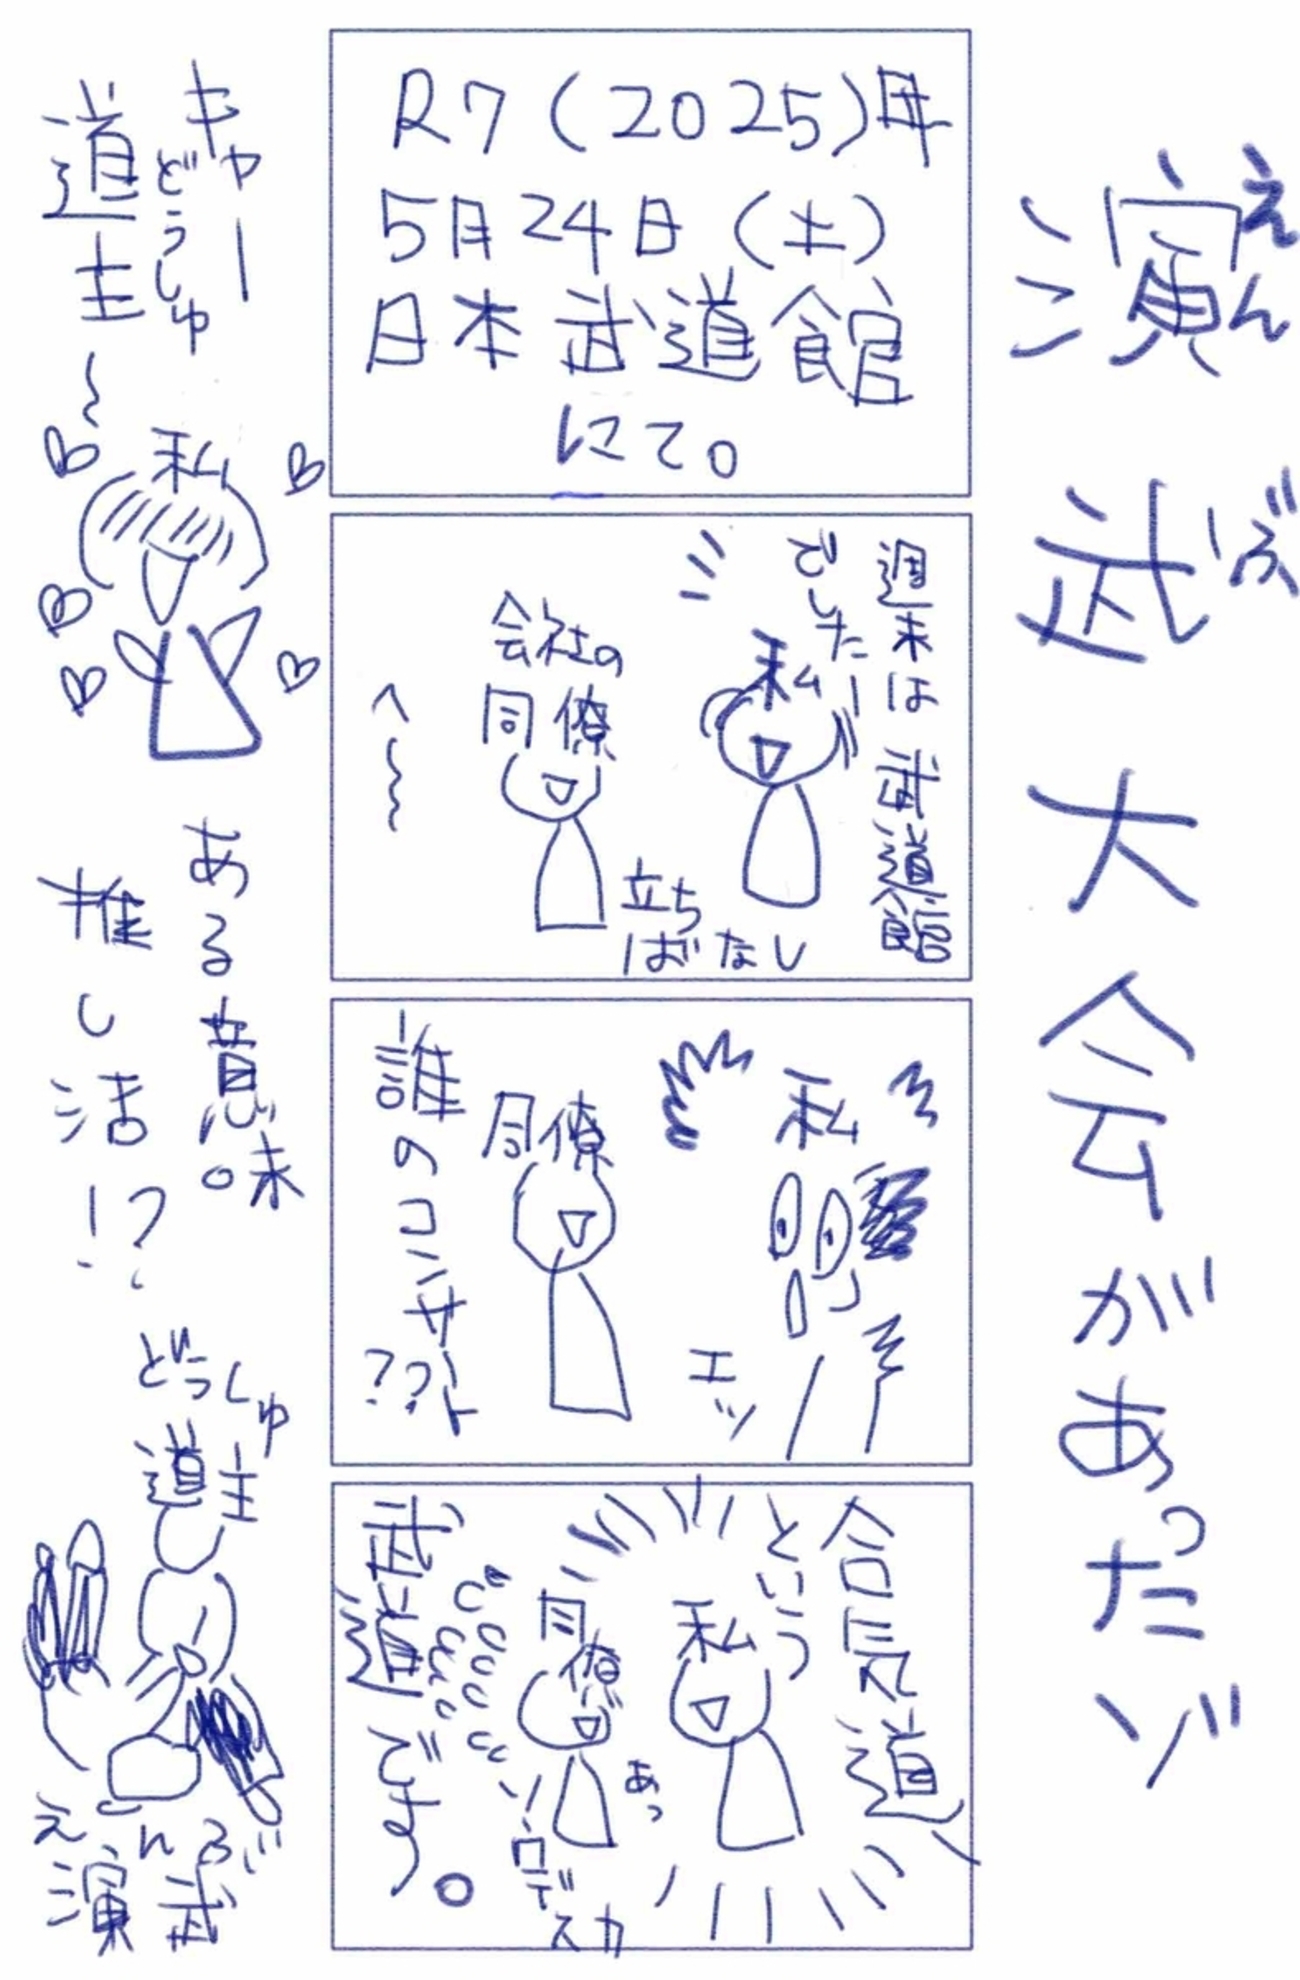 演武大会があったゾ
えんぶ
R7(2025)年
5月24日(土)
日本武道館
にて。
週末は武道館
でしたー
私
会社の
同僚
へ〜〜
立ち
ばなし
私
エッ
同僚
誰のコンサート
??
合気道
という
私
同僚
あっ
ソーデスカ
武道です。
キャー
道主〜
どうしゅ
私
ある意味
推し活!?
どうしゅ
道主
えんぶ
演武